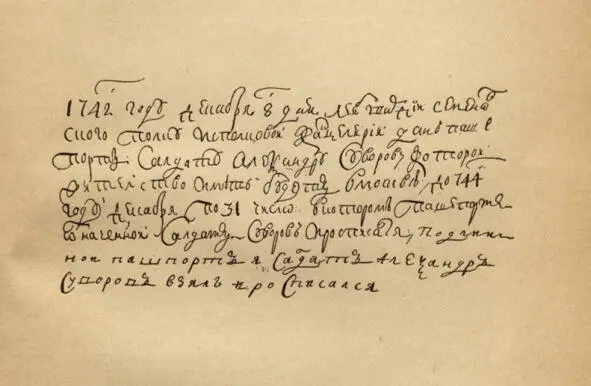 1742 году декабря 8 дня леибгвардіи семенов
ского полку ис полковой канцелярїи данъ паше
портъ Салдату Александру Суворову которой
жителство имѣть будетъ в москвѣ до 744
году декабря по 31 число в котором пашепорте
означенной Салдатъ Суворовъ росписался, подлин
ной пашпортъ я Салдатъ Александръ
Суворовъ взялъ и росписался